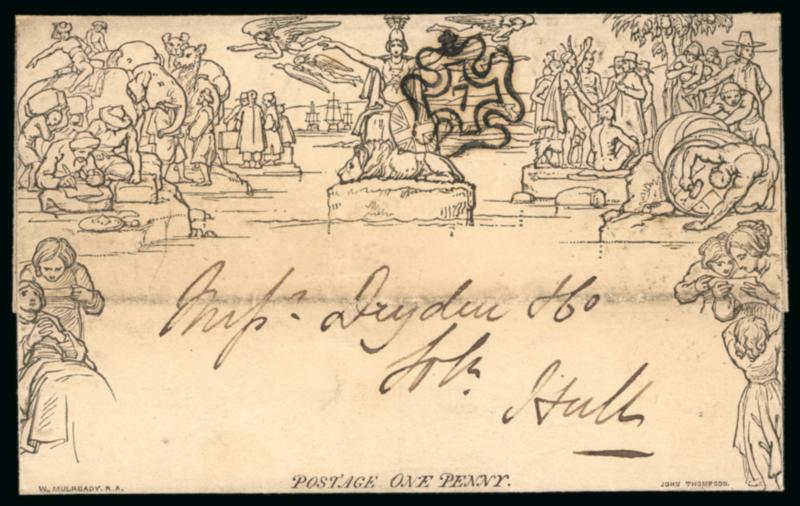 7
Dryden
Hull
POSTAGE ONE PENNY.
W. MULREADY. R.A.
JOHN THOMPSON.